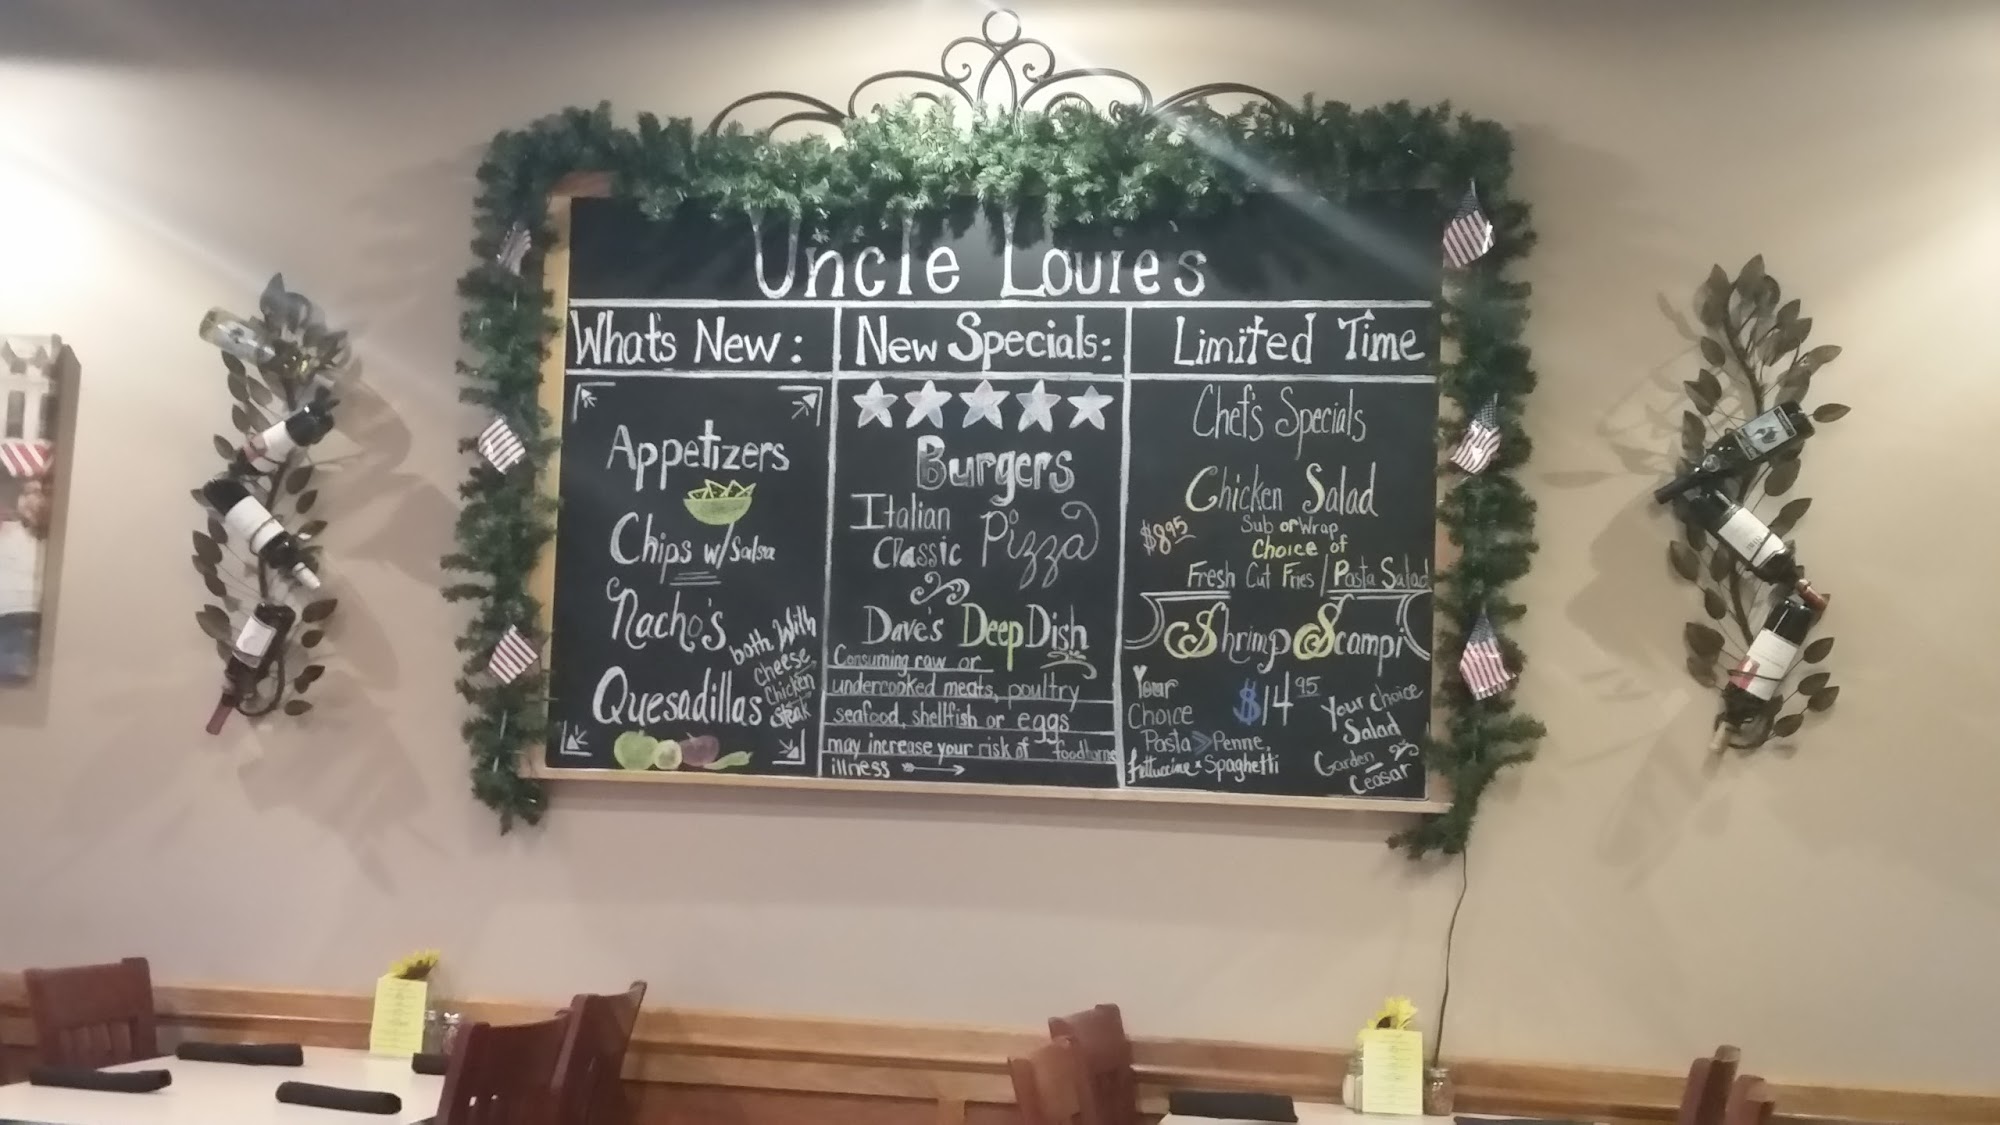 Uncle Louie's
What's New:
Appetizers
Chips w/ Salsa
Nacho's
Quesadillas
both with
cheese,
chicken
steak
New Specials:
Burgers
Italian
Classic
Pizza
Dave's Deep Dish
Consuming raw or
undercooked meats, poultry
seafood, shellfish or eggs
may increase your risk of foodborne
illness
Limited Time
Chef's Specials
Chicken Salad
$8.95
Sub or Wrap
Choice of
Fresh Cut Fries / Pasta Salad
Shrimp Scampi
Your
Choice
Pasta > Penne,
fettuccine * Spaghetti
$14.95
Your choice
Salad
Garden
Ceasar